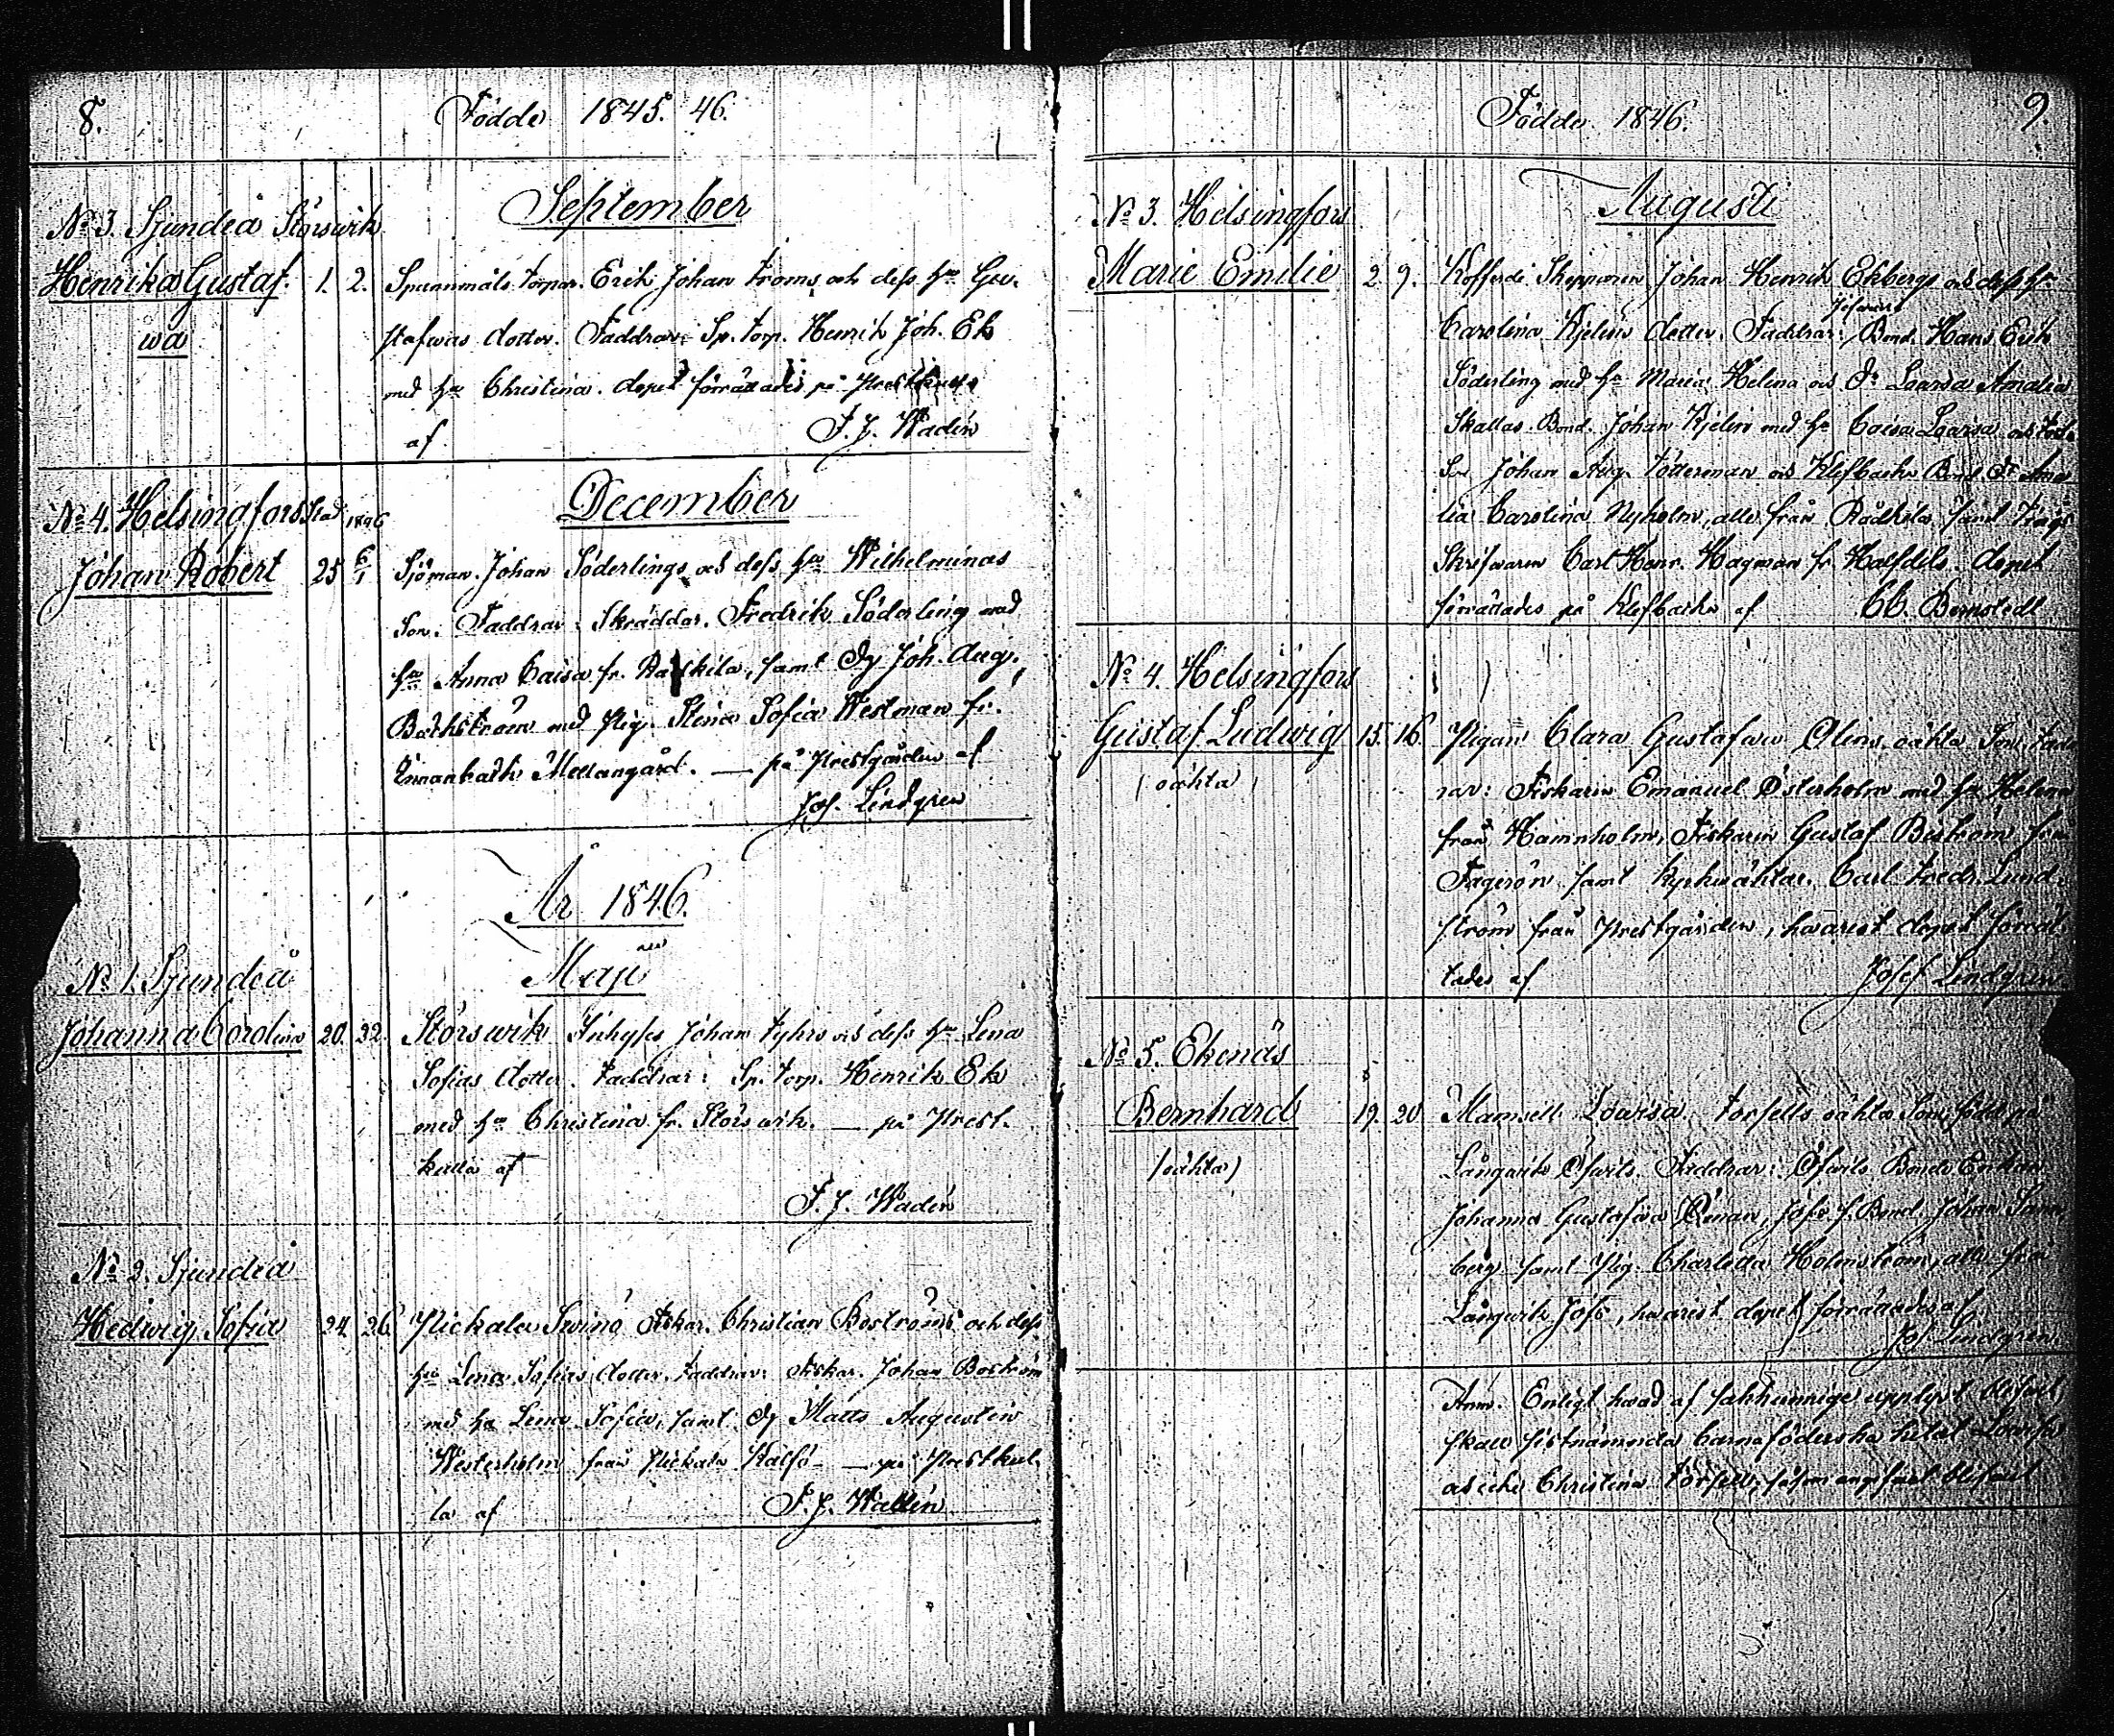 8.
Födde 1845. 46.
September
No 3. Sjundeå Störswik
Henrika Gustaf. 1. 2. Spannmåls torpar. Erik Johan Froms och dess hu Gu-
wa
stafwas dotter. Faddrar: Sp. torp. Henrik Joh. Ek
med hu Christina. dopet förrättades på Prestkulla
af F. J. Wadén
December
No 4. Helsingfors Stad 1846
Johan Robert 25 6/1 Sjöman Johan Söderlings och dess hu Wilhelminas
Son. Faddrar: Skräddar. Fredrik Söderling med
hu Anna Caisa fr. Rådkila, samt Dg Joh. Aug.
Bäckström med Pig. Stina Sofia Westman fr.
Mellangård. — på Prestgården af
Jos. Lindgren
År 1846.
Maji
No 1. Sjundeå
Johanna Carolina 20. 22. Störswik Inhyses Johan Fyhrs och dess hu Lena
Sofias dotter. Faddrar: Sp. torp. Henrik Ek
med hu Christina fr. Störswik. — på Prest-
kulla af
F. J. Wadén
No 2. Sjundeå
Hedwig Sofia 24. 26. Pickala Swinö Fiskar. Christian Boströms och dess
hu Lena Sofias dotter. Faddrar: Fiskar. Johan Boström
med hu Lena Sofia, samt Dg Matts Augustin
Westerholm från Pickala Kalfö — på Prestkul-
la af F. J. Wadén
Födde 1846.
9.
Augusti
No 3. Helsingfors
Marie Emilie 2. 9. Kofferdi Skepparen Johan Henrik Ekbergs och dess hu
Carolina Kjelins dotter. Faddrar: Bond. Hans Erik
Söderling med hu Maria Helena och Dr Lovisa Amalia
Skallas Bond. Johan Kjelin med hu Caisa Lovisa och
Son Johan Aug. Tötterman och Klefbacka Bond. Dr Ama-
lia Carolina Nyholm, alla från Rådkila samt
Skrifwaren Carl Henr. Hagman fr. Halfdels. dopet
förrättades på Klefbacka af Bernstedt
No 4. Helsingfors
Gustaf Ludwig 15. 16. Pigan Clara Gustafwa Olins oäkta Son. Fadd-
(oäkta)
rar: Fiskaren Emanuel Österholm med hu Helena
från Hamnholm, Fiskaren Gustaf Biström från
Fagerön samt Kyrkwäktar. Carl Fredr. Lund-
ström från Prestgården, hwarest dopet förrät-
tades af Josef Lindgren
No 5. Ekenäs
Bernhard 19. 20 Mamsell Lowisa Forsells oäkta Son, född på
(oäkta)
Långwik Öfwils. Faddrar: Öfwils Bonde Enkan
Johanna Gustafwa Öman, Jofs f. Bond. Johan Sand-
berg samt Pig. Charlotta Holmström, alla från
Långwik Jofs, hwarest dopet förrättades af
Jos. Lindgren.
Anm. Enligt hwad af sakkunnige upplyst blifwit,
skall sistnämnda barnaföderska hetat Lowisa
och icke Christina Forsell, såsom angifwit blifwit